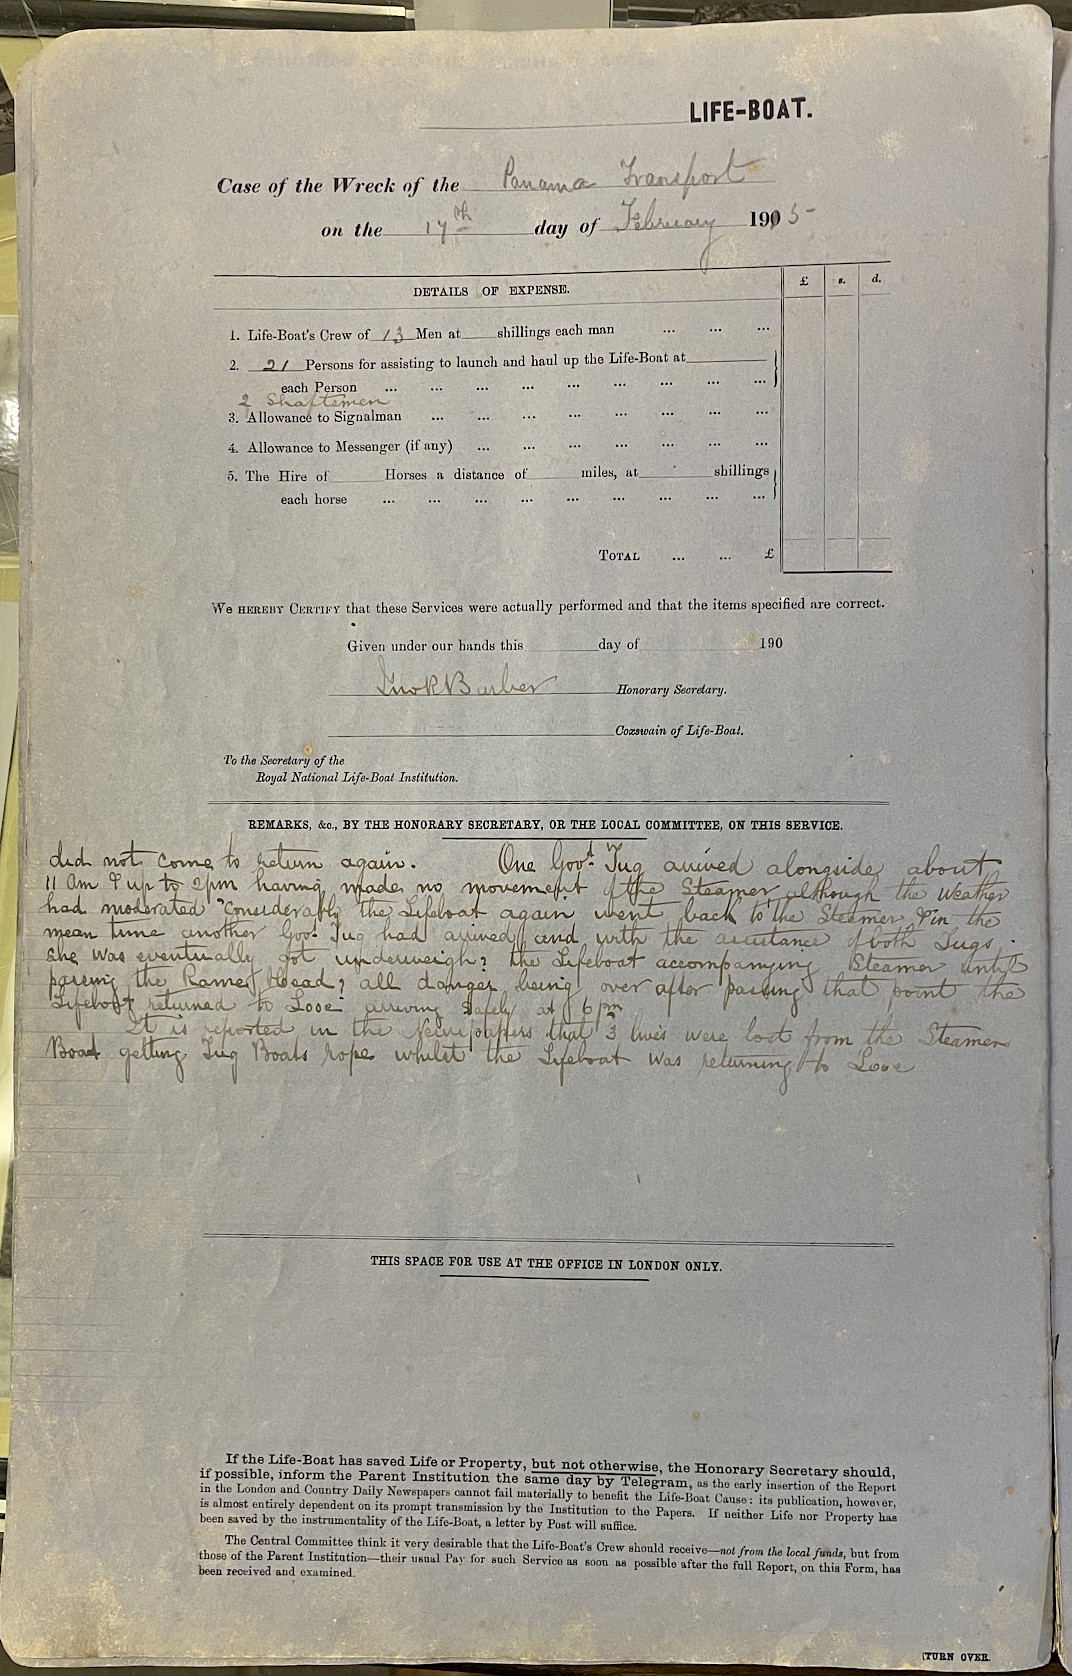 LIFE-BOAT.
Case of the Wreck of the Panama Transport
on the 17th day of February 1905-
DETAILS OF EXPENSE. £ s. d.
1. Life-Boat's Crew of 13 Men at shillings each man ... ... ...
2. 21 Persons for assisting to launch and haul up the Life-Boat at
each Person ... ... ... ... ... ... ... ... ...
2 Shaftsmen
3. Allowance to Signalman ... ... ... ... ... ... ... ...
4. Allowance to Messenger (if any) ... ... ... ... ... ... ...
5. The Hire of Horses a distance of miles, at shillings
each horse ... ... ... ... ... ... ... ... ...
TOTAL ... ... £
WE HEREBY CERTIFY that these Services were actually performed and that the items specified are correct.
Given under our hands this day of 190
Barber Honorary Secretary.
Coxswain of Life-Boat.
To the Secretary of the
Royal National Life-Boat Institution.
REMARKS, &c., BY THE HONORARY SECRETARY, OR THE LOCAL COMMITTEE, ON THIS SERVICE.
did not come to return again. One Govt Tug arrived alongside about
11 Am & up to 2pm having made no movement of the Steamer although the Weather
had moderated considerably the Lifeboat again went back to the Steamer & in the
mean time another Govt Tug had arrived and with the assistance of both Tugs
she was eventually got underweigh, the Lifeboat accompanying Steamer until
passing the Rame Head, all danger being over after passing that point the
Lifeboat returned to Looe arriving safely at 6 pm
It is reported in the Newspapers that 3 lives were lost from the Steamers
Boat getting Tug Boats rope whilst the Lifeboat was returning to Looe
THIS SPACE FOR USE AT THE OFFICE IN LONDON ONLY.
If the Life-Boat has saved Life or Property, but not otherwise, the Honorary Secretary should,
if possible, inform the Parent Institution the same day by Telegram, as the early insertion of the Report
in the London and Country Daily Newspapers cannot fail materially to benefit the Life-Boat Cause: its publication, however,
is almost entirely dependent on its prompt transmission by the Institution to the Papers. If neither Life nor Property has
been saved by the instrumentality of the Life-Boat, a letter by Post will suffice.
The Central Committee think it very desirable that the Life-Boat's Crew should receive—not from the local funds, but from
those of the Parent Institution—their usual Pay for such Service as soon as possible after the full Report, on this Form, has
been received and examined.
[TURN OVER.